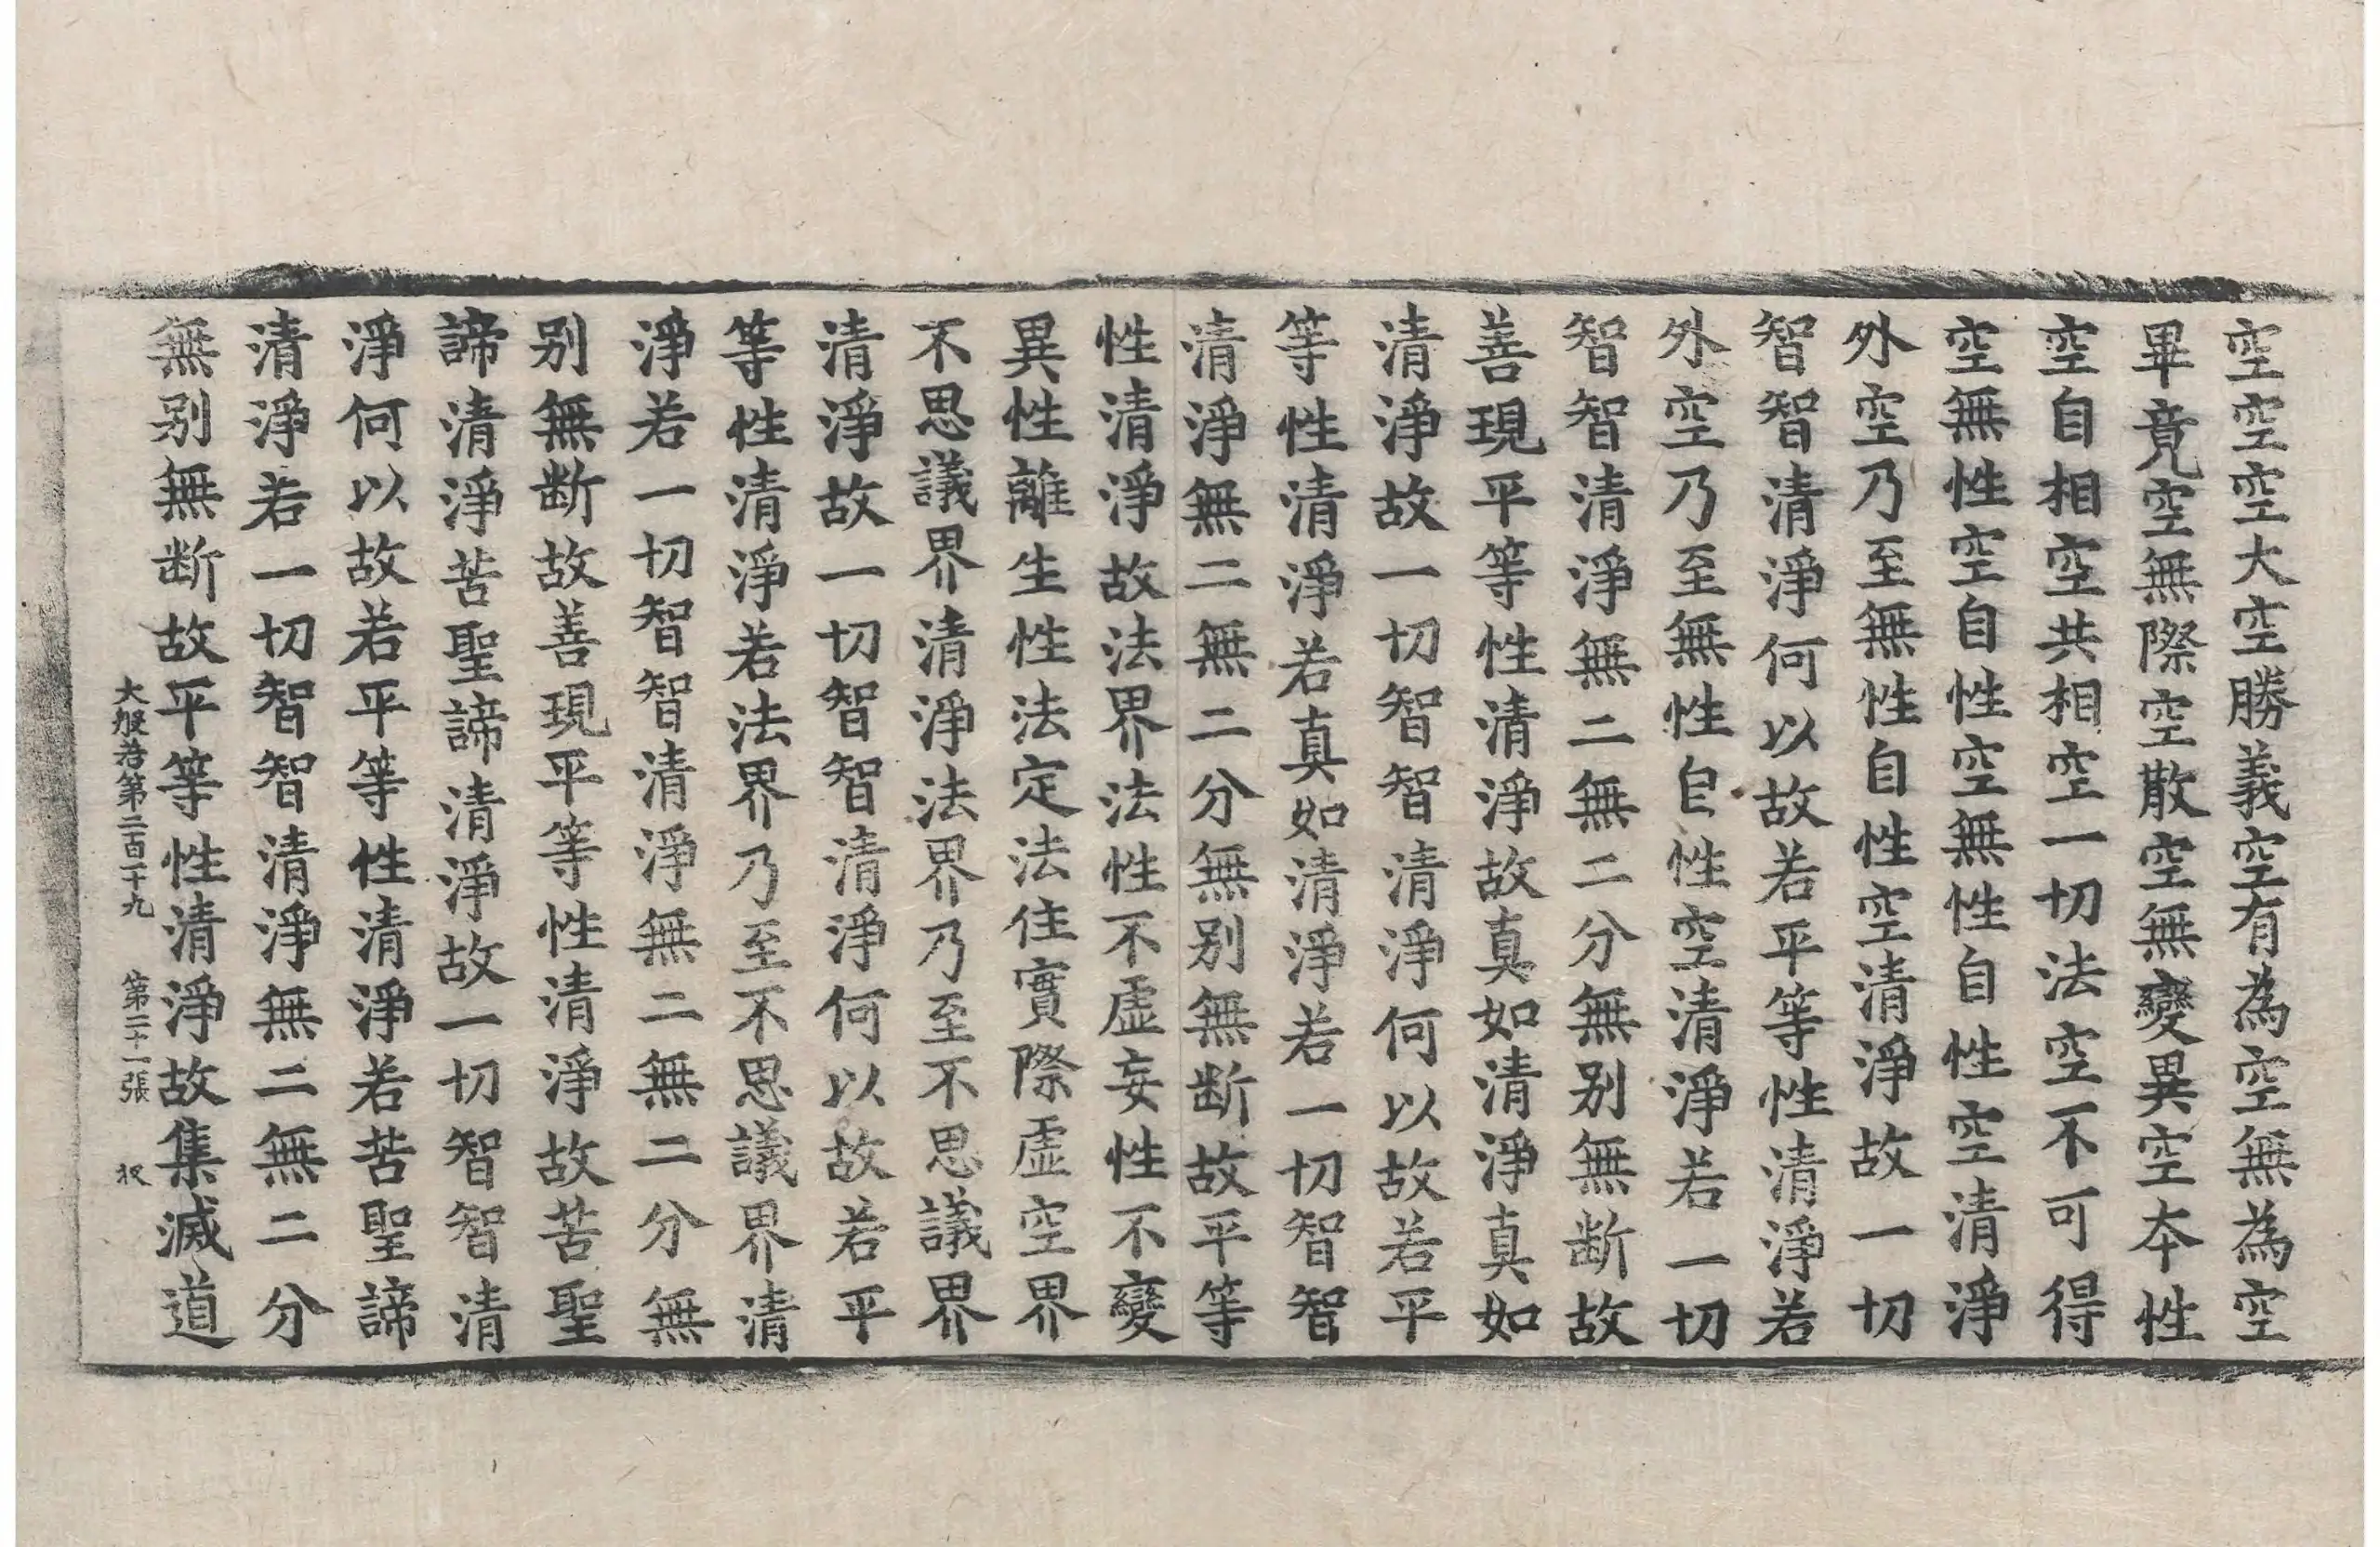 空空空大空勝義空有為空無為空
畢竟空無際空散空無變異空本性
空自相空共相空一切法空不可得
空無性空自性空無性自性空清淨
外空乃至無性自性空清淨故一切
智智清淨何以故若平等性清淨若
外空乃至無性自性空清淨若一切
智智清淨無二無二分無别無断故
善現平等性清淨故真如清淨真如
清淨故一切智智清淨何以故若平
等性清淨若真如清淨若一切智智
清淨無二無二分無别無断故平等
性清淨故法界法性不虛妄性不變
異性離生性法定法住實際虛空界
不思議界清淨法界乃至不思議界
清淨故一切智智清淨何以故若平
等性清淨若法界乃至不思議界清
淨若一切智智清淨無二無二分無
别無断故善現平等性清淨故苦聖
諦清淨苦聖諦清淨故一切智智清
淨何以故若平等性清淨若苦聖諦
清淨若一切智智清淨無二無二分
無别無断故平等性清淨故集滅道
大般若第二百十九 第二十一張